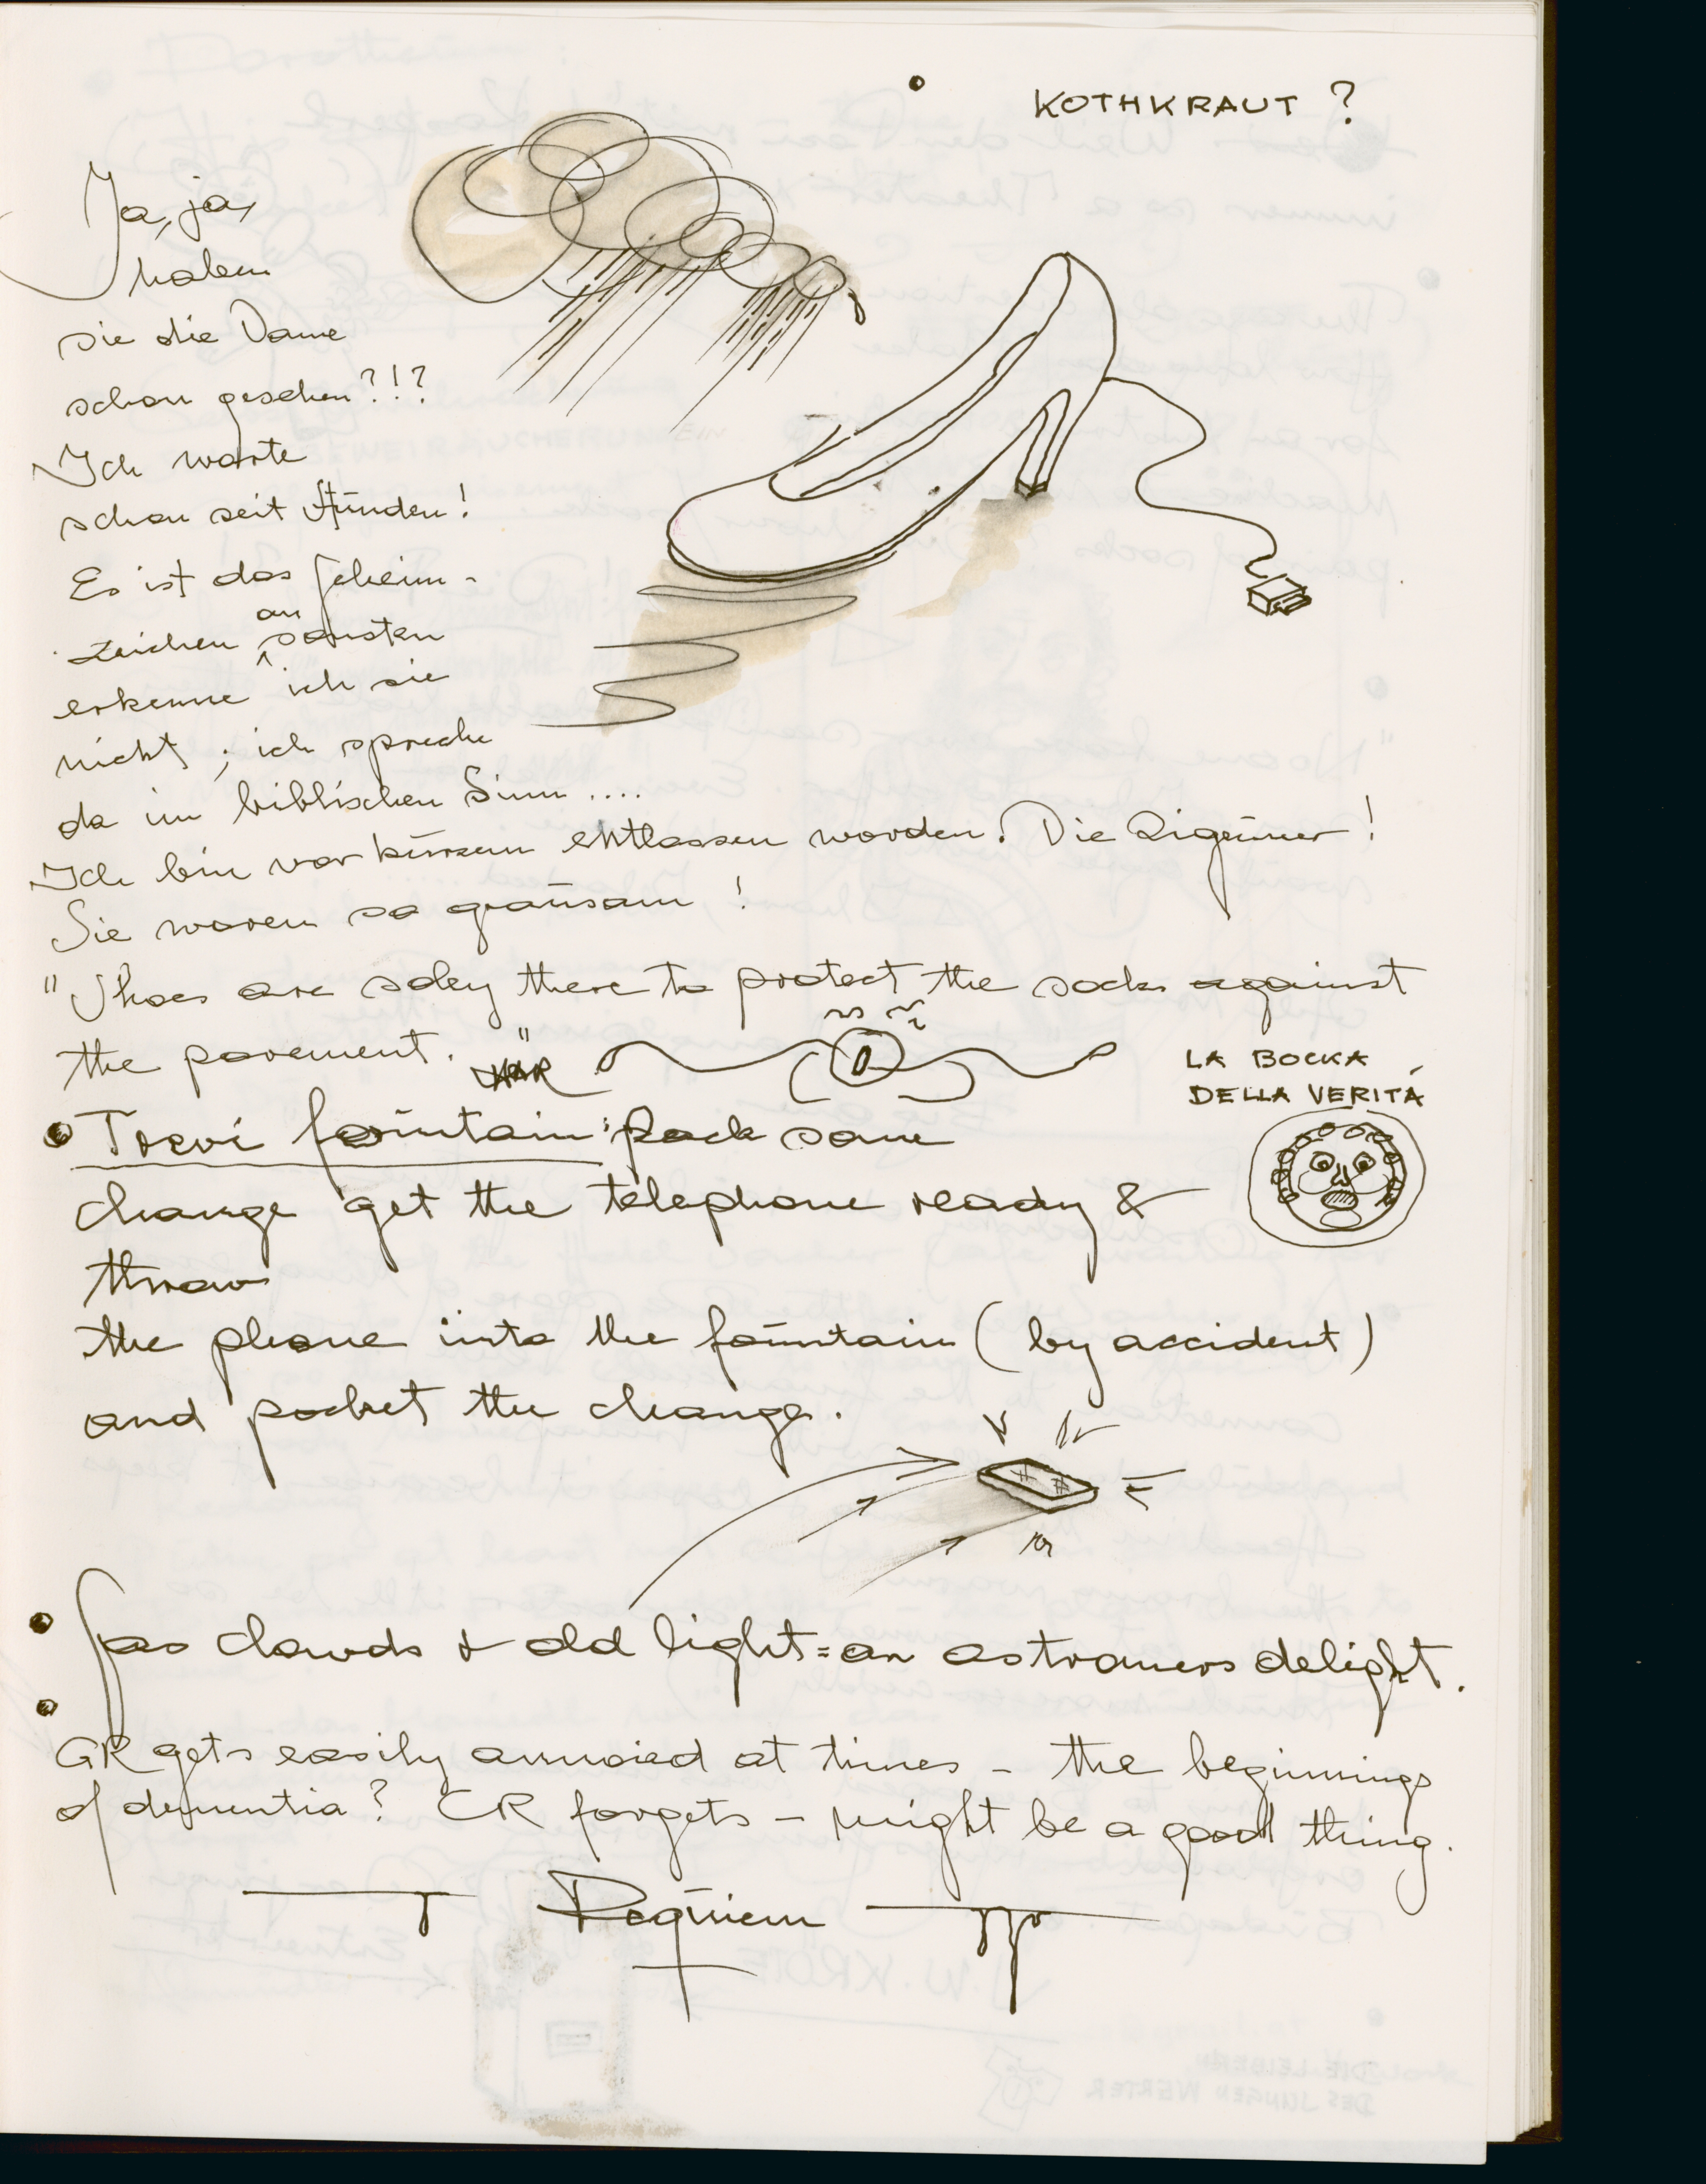 KOTHKRAUT ?
Ja, ja,
haben
sie die Dame
schon gesehen?!?
Ich warte
schon seit Stunden!
Es ist das Geheim-
zeichen an sonsten
erkenne ich sie
nicht ; ich spreche
da im biblischen Sinn ....
Ich bin vor kurzem entlassen worden. Die Zigeuner !
Sie waren so grausam !
"Shoes are soley there to protect the socks against
the pavement."
LA BOCKA
DELLA VERITÁ
• Trevi fountain: Pack some
change get the telephone ready &
throw
the phone into the fountain (by accident)
and pocket the change.
• Gas clowds & old light = an astromers delight.
• GR gets easily annoied at times - the beginnings
of dementia? CR forgets - might be a good thing.
Requiem